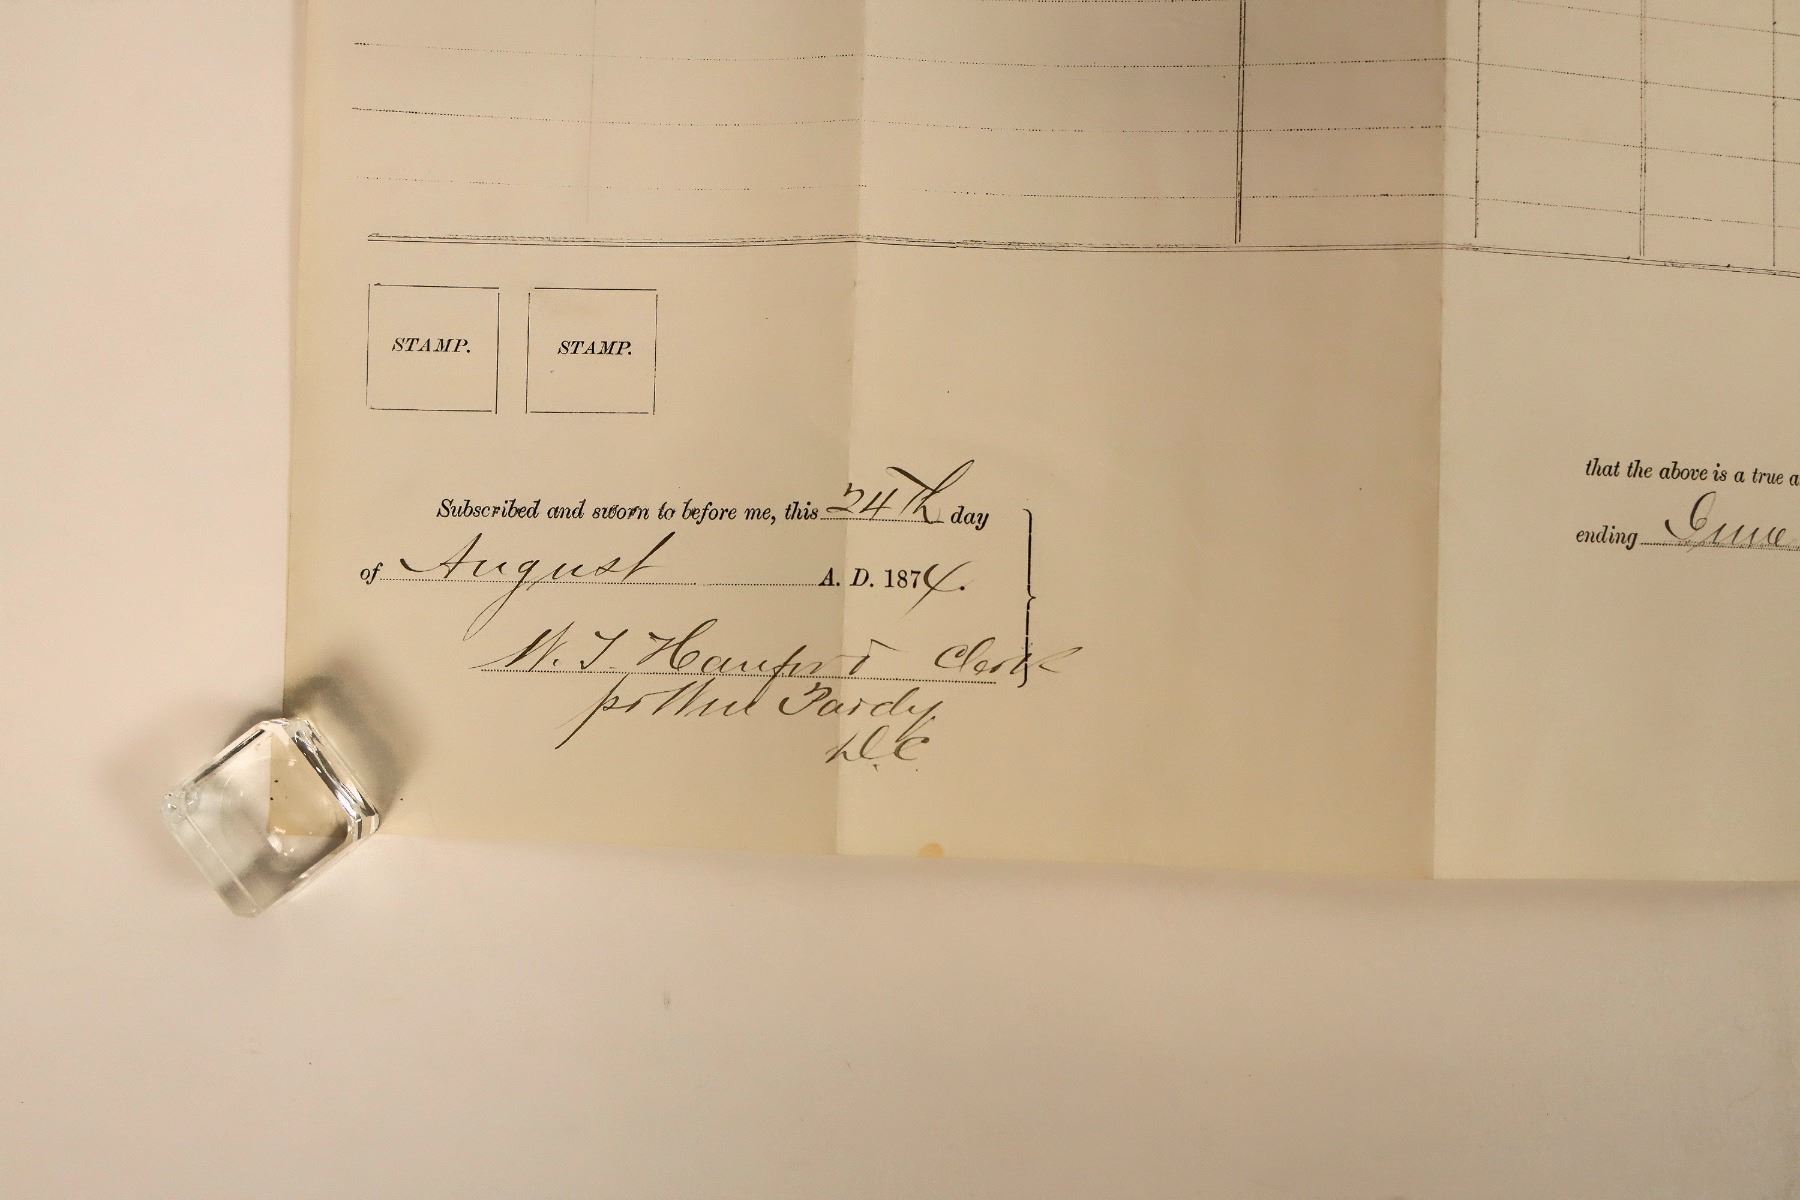 STAMP. STAMP.
Subscribed and sworn to before me, this 24Th day
of August A. D. 1874.
W. T. Hanford Clerk
Tardy
D.C.
that the above is a true a
ending June